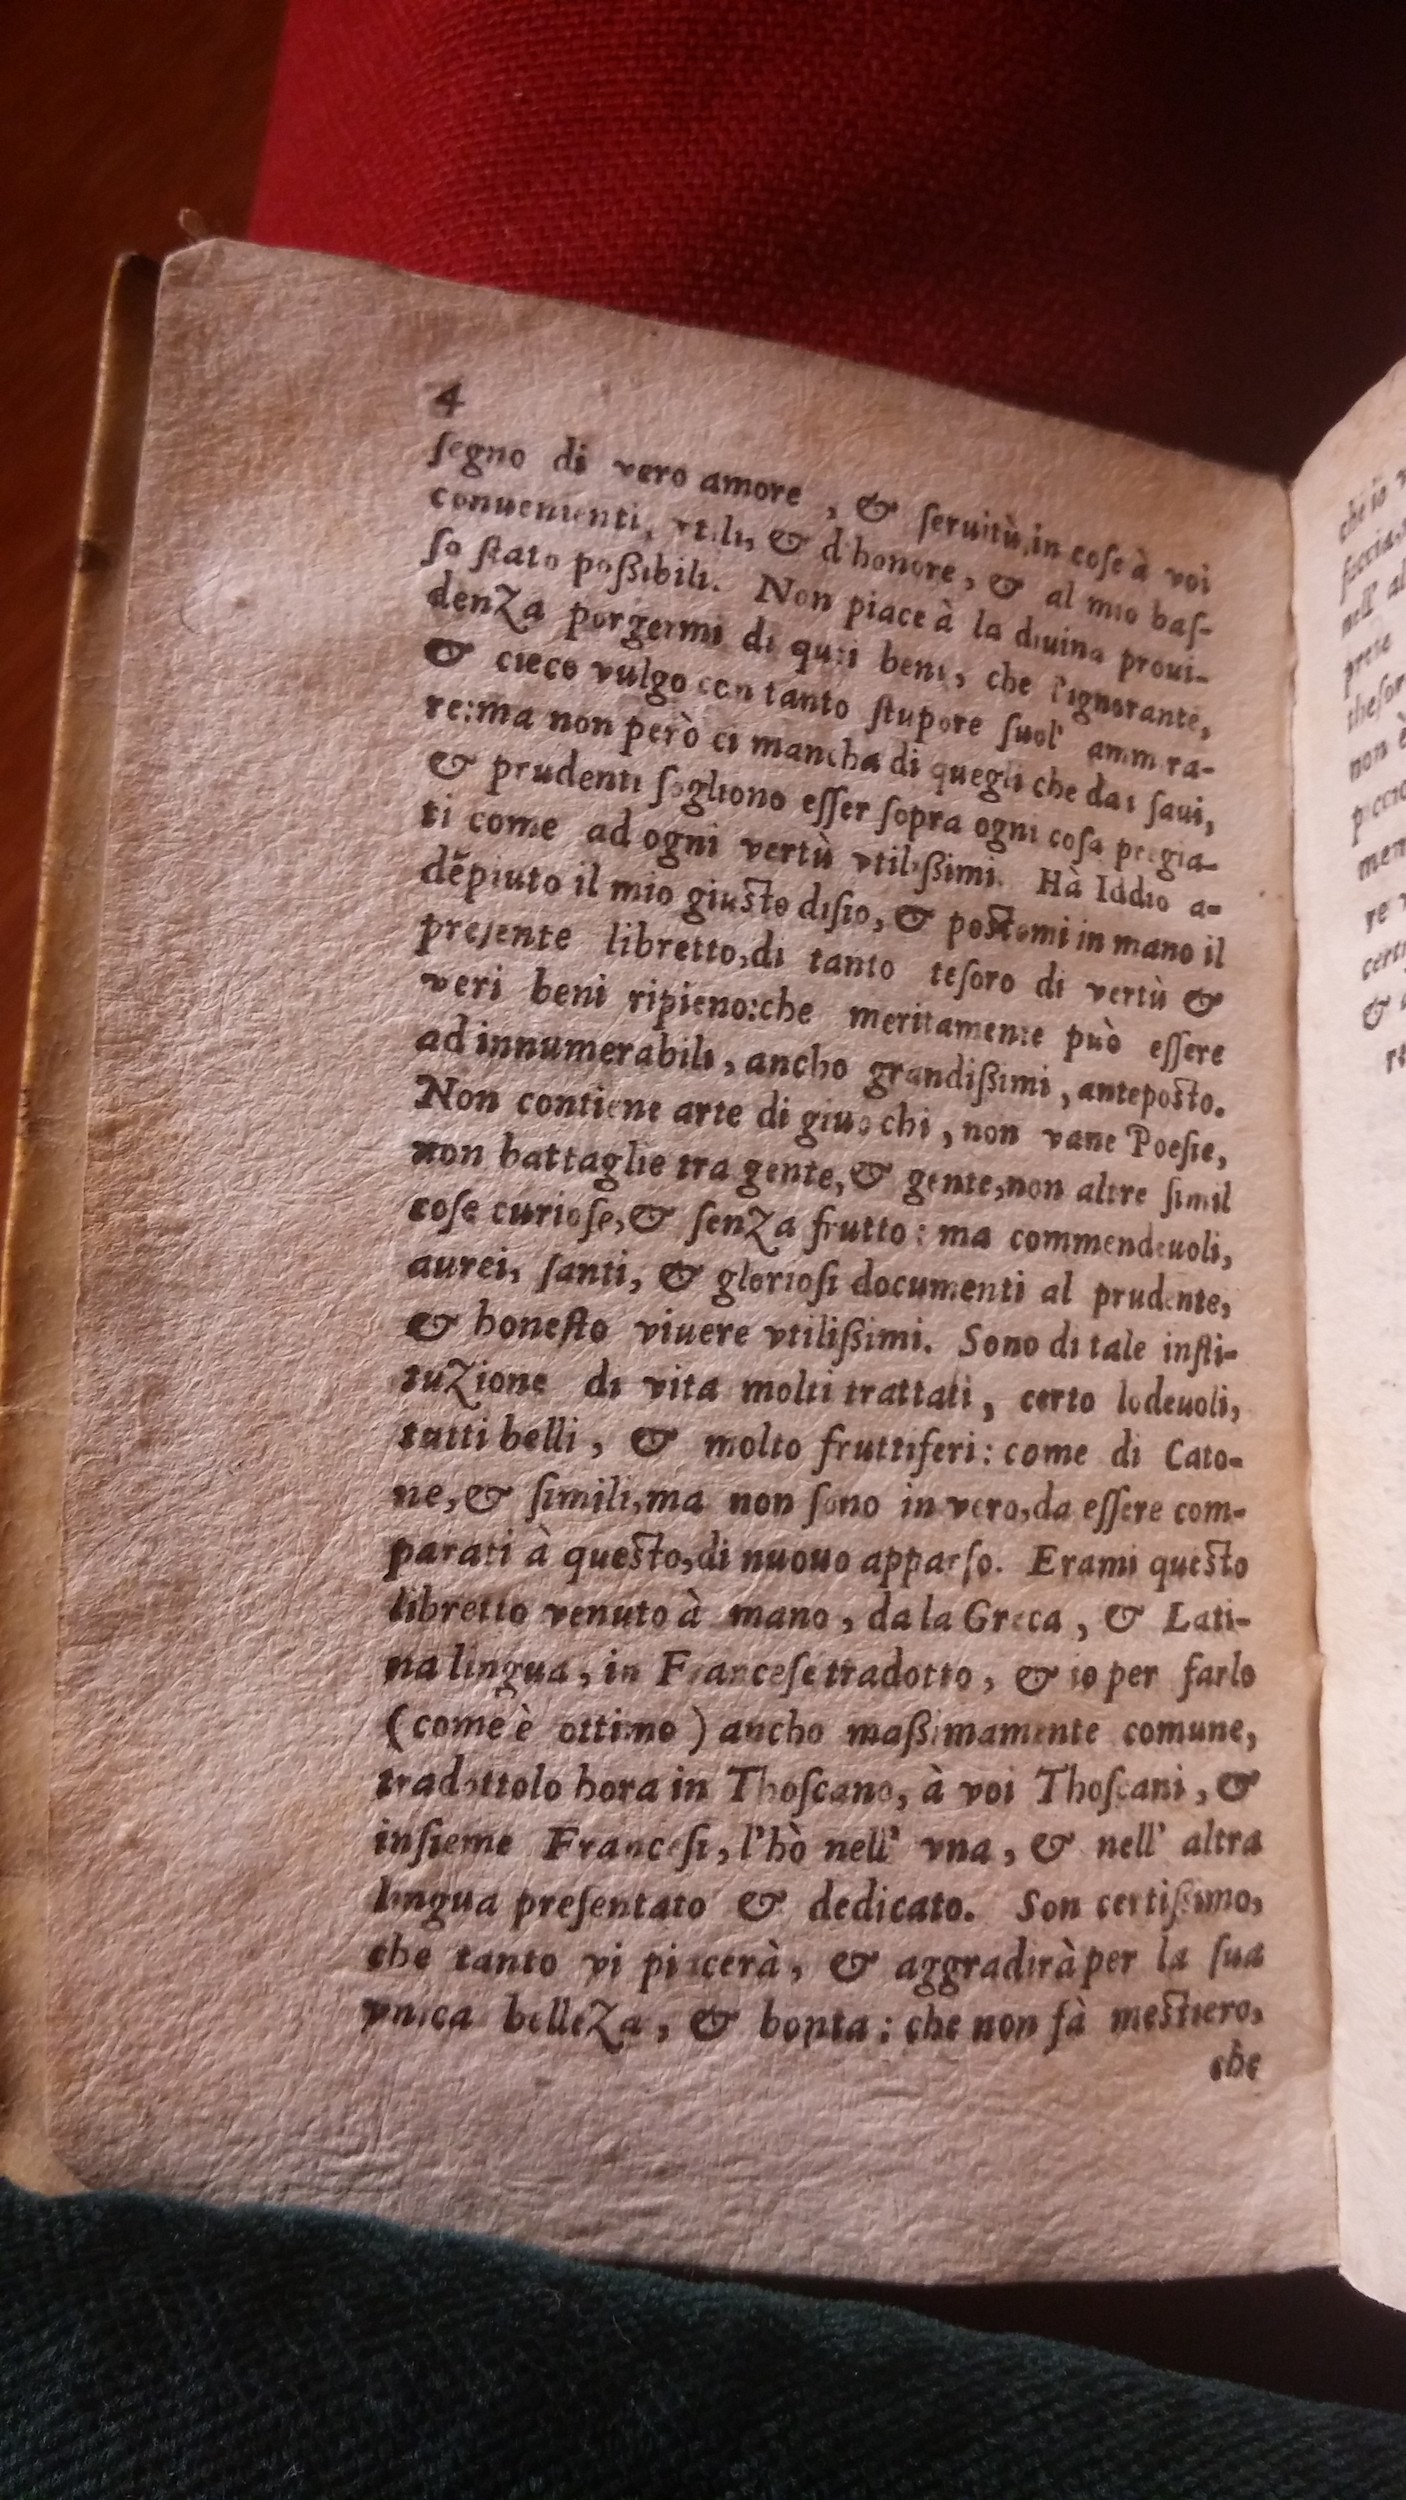 4
ſegno di vero amore, & ſeruitù, in coſe à voi
conuenienti, vtili, & d'honore, & al mio baſ-
ſo ſtato poßibili. Non piace à la diuina proui-
denza porgermi di quei beni, che l'ignorante,
& cieco vulgo con tanto ſtupore ſuol' ammira-
re: ma non però ci mancha di quegli che dai ſaui,
& prudenti ſogliono eſſer ſopra ogni coſa pregia-
ti come ad ogni vertù vtilißimi. Hà Iddio a-
dẽpiuto il mio giusto diſio, & postomi in mano il
preſente libretto, di tanto teſoro di vertù &
veri beni ripieno: che meritamente può eſſere
ad innumerabili, ancho grandißimi, anteposto.
Non contiene arte di giuochi, non vane Poeſie,
non battaglie tra gente, & gente, non altre ſimil
coſe curioſe, & ſenza frutto: ma commendeuoli,
aurei, ſanti, & glorioſi documenti al prudente,
& honeſto viuere vtilißimi. Sono di tale inſti-
tuzione di vita molti trattati, certo lodeuoli,
tutti belli, & molto fruttiferi: come di Cato-
ne, & ſimili, ma non ſono in vero, da eſſere com-
parati à questo, di nuouo apparſo. Erami questo
libretto venuto à mano, da la Greca, & Lati-
na lingua, in Franceſe tradotto, & io per farlo
(come è ottimo) ancho maßimamente comune,
tradottolo hora in Thoſcano, à voi Thoſcani, &
inſieme Franceſi, l'hò nell' vna, & nell' altra
lingua preſentato & dedicato. Son certißimo,
che tanto vi piacerà, & aggradirà per la ſua
vnica belleza, & bonta: che non fà mestiero,
che
che io
facciat
nell' al
prete
theſor
non è
piccio
men
re v
cert
&